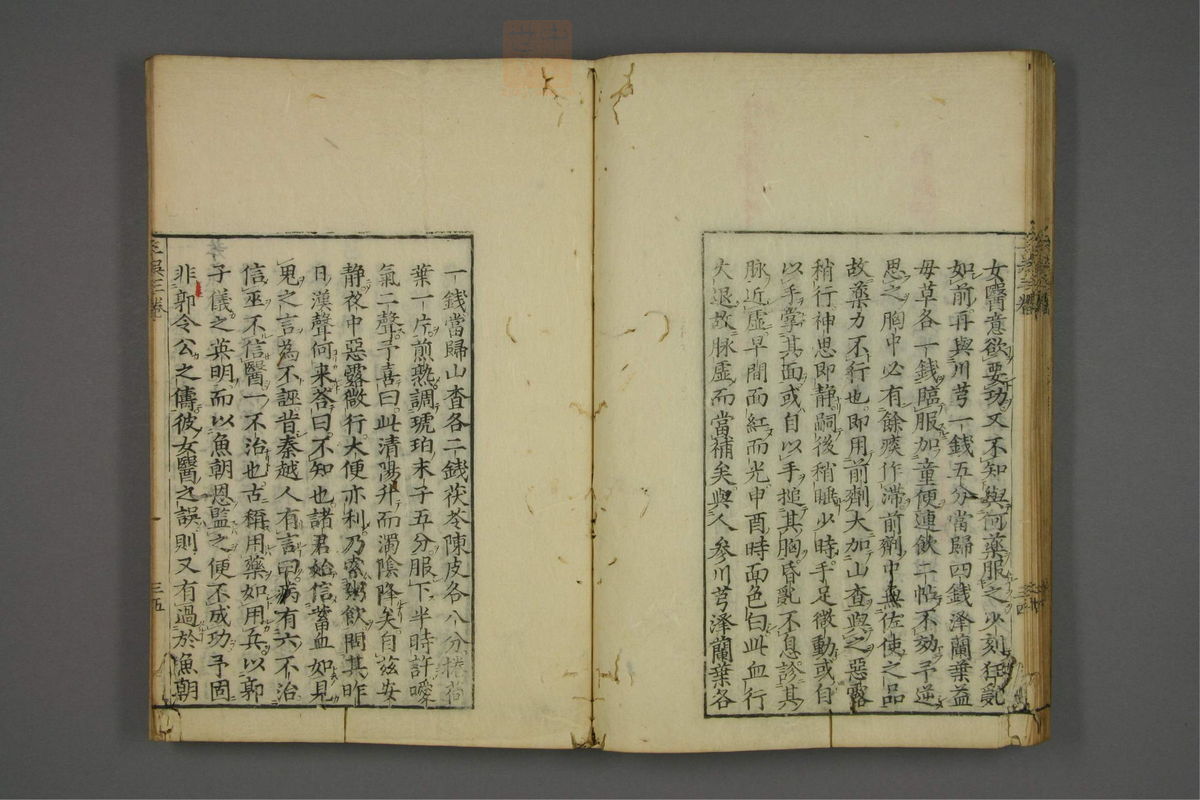 女醫意欲要功又不知與何藥服之少刻狂亂
如前再與川芎一錢五分當歸四錢澤蘭葉益
母草各一錢臨服加童便連飲二帖不効予逆
思之胸中必有餘瘀作滯前劑中無佐使之品
故藥力不行也即用前劑大加山查與之惡露
稍行神思即靜嗣後稍睡少時手足微動或自
以手掌其面或自以手搥其胸昏亂不息診其
脉近虛早間面紅而光申酉時面色白此血行
火退故脉虛而當補矣與人參川芎澤蘭葉各
三十四
一錢當歸山查各二錢茯苓陳皮各八分捲荷
葉一片煎熟調琥珀末子五分服下半時許噯
氣二聲予喜曰此清陽升而濁陰降矣自茲安
靜夜中惡露微行大便亦利乃索粥飲問其昨
日漢聲何來答曰不知也諸君始信蓄血如見
鬼之言為不誣昔秦越人有言曰病有六不治
信巫不信醫一不治也古稱用藥如用兵以郭
子儀之英明而以魚朝恩監之便不成功予固
非郭令公之儔彼女醫之誤則又有過於魚朝
三吳三卷
三五